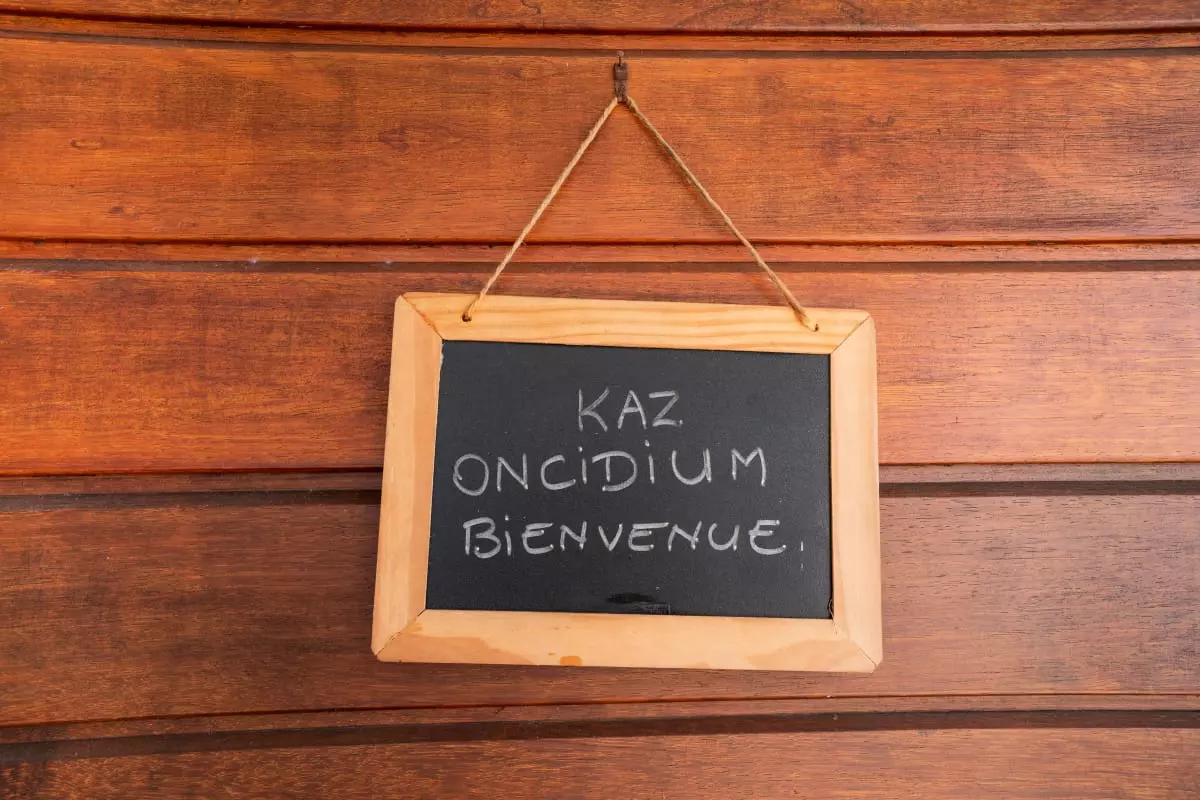 KAZ
ONCIDIUM
BIENVENUE.